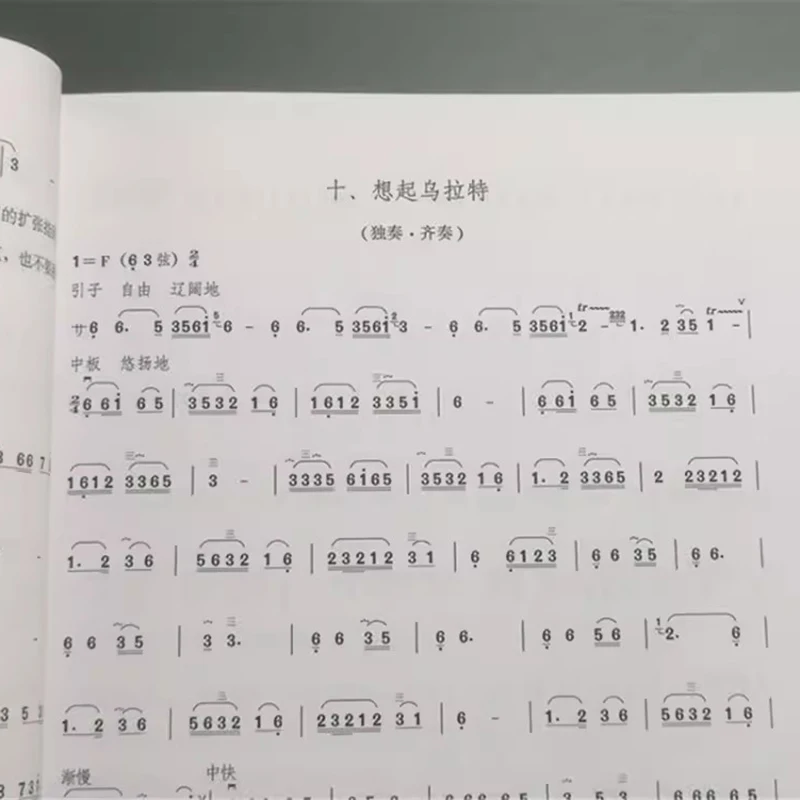 十、想起乌拉特
（独奏·齐奏）
1=F（6̣ 3弦）2/4
引子 自由 辽阔地
サ6̣ 6. 5 3561̇ 6 - 6̣ 6. 5 3561̇ 3 - 6̣ 6. 5 3561̇ 2 - 1. 2 35 1 - |
中板 悠扬地
2/4 6̣ 61̇ 65 | 3532 16̣ | 16̣12 3351̇ | 6 - | 6̣ 61̇ 65 | 3532 16̣ |
16̣12 3365 | 3 - | 3335 61̇65 | 3532 16̣ | 1. 2 3365 | 2 23212 |
1. 2 36 | 5632 16̣ | 23212 31 | 6̣ 6̣123 | 6̣ 6 35 | 6̣ 6. |
6̣ 6 35 | 3 3. | 6̣ 6 35 | 6̣ 6. | 6̣ 6 56 | 2. 6̣ |
1. 2 36 | 5632 16̣ | 23212 31 | 6̣ - | 1. 2 36 | 5632 16̣ |
渐慢 中快
3
的扩张
，也不要